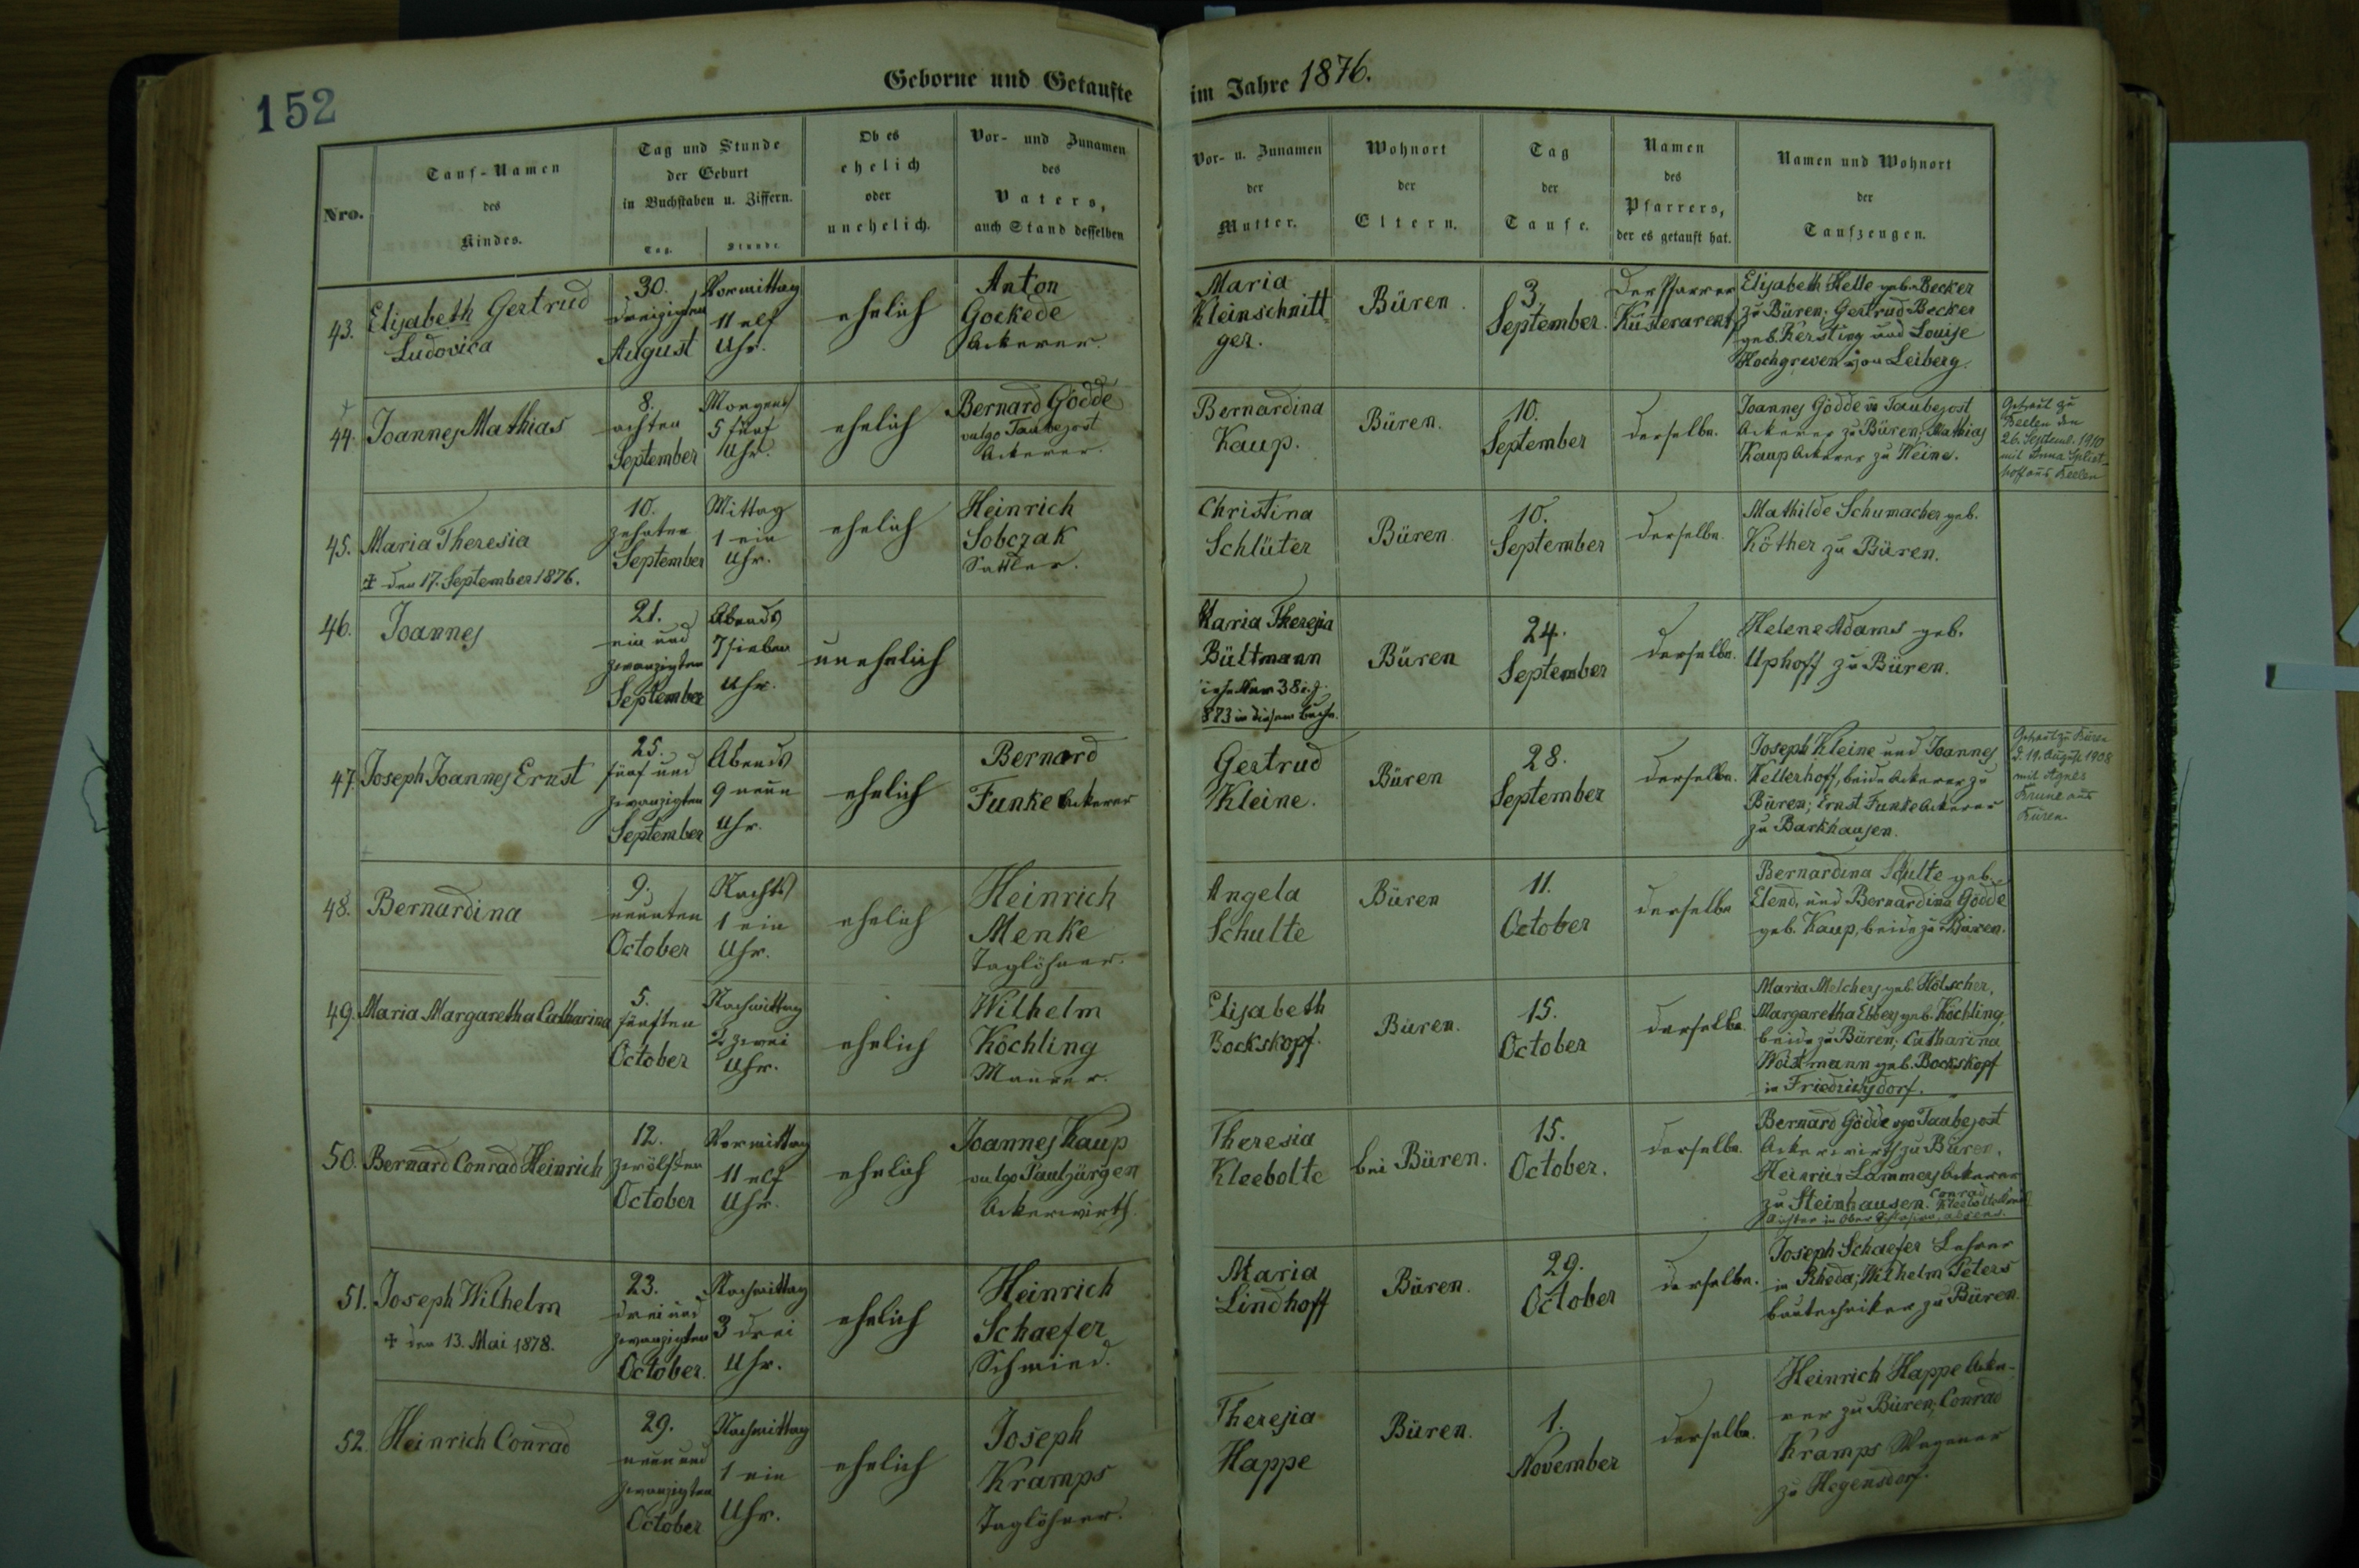 152
Geborne und Getaufte
im Jahre 1876.
Nro.
Tauf-Namen
des
Kindes.
Tag und Stunde
der Geburt
in Buchstaben u. Ziffern.
Tag.
Stunde
Ob es
ehelich
oder
unehelich.
Vor- und Zunamen
des
Vaters,
auch Stand desselben
Vor- u. Zunamen
der
Mutter.
Wohnort
der
Eltern.
Tag
der
Taufe.
Namen
des
Pfarrers,
der es getauft hat.
Namen und Wohnort
der
Taufzeugen.
43.
Elisabeth Gertrud
Ludovica
30.
dreizigsten
August
Vormittag
11 elf
Uhr.
ehelich
Anton
Gockede
Ackerer
Maria
Kleinschnitt
ger.
Büren.
3.
September.
Der Pfarrer
Küsterarent
Elisabeth Helle geb. Becker
zu Büren; Gertrud Becker
geb. Kersting und Louise
Hochgreven von Leiberg.
44.
Joannes Mathias
8.
achten
September
Morgens
5 fünf
Uhr.
ehelich
Bernard Gödde
vulgo Taubejost
Ackerer.
Bernardina
Kaup.
Büren.
10.
September
derselbe.
Joannes Gödde vo Taubejost
Ackerer zu Büren; Mathias
Kaup Ackerer zu Weine.
Getraut zu
Beelen den
26. Septemb. 1910
mit Anna Spliet-
hoff aus Beelen
45.
Maria Theresia
✝ den 17. September 1876.
10.
zehnten
September
Mittag
1 ein
Uhr.
ehelich
Heinrich
Sobczak
Sattler.
Christina
Schlüter
Büren
10.
September
derselbe.
Mathilde Schumacher geb.
Köther zu Büren.
46.
Joannes
21.
ein und
zwanzigsten
September
Abends
7 sieben
Uhr.
unehelich
Maria Theresia
Bültmann
siehe Num 38 i. J.
873 in diesem Buche.
Büren
24.
September
derselbe.
Helene Adams geb.
Uphoff zu Büren.
47.
Joseph Joannes Ernst
25.
fünf und
zwanzigsten
September
Abends
9 neun
Uhr.
ehelich
Bernard
Funke Ackerer
Gertrud
Kleine.
Büren
28.
September
derselbe.
Joseph Kleine und Joannes
Kellerhoff, beide Ackerer zu
Büren; Ernst Funke Ackerer
zu Barkhausen.
Getraut zu Büren
d. 19. August 1908
mit Agnes
aus
Büren.
48.
Bernardina
9.
neunten
October
Nachts
1 ein
Uhr.
ehelich
Heinrich
Menke
Taglöhner.
Angela
Schulte
Büren
11.
October
derselbe
Bernardina Schulte geb.
Elend, und Bernardina Gödde
geb. Kaup, beide zu Büren.
49.
Maria Margaretha Catharina
5.
fünften
October
Nachmittag
2 zwei
Uhr.
ehelich
Wilhelm
Köchling
Maurer.
Elisabeth
Bockskopf.
Büren.
15.
October
derselbe.
Maria Melchers geb. Hölscher,
Margaretha Ebbes geb. Köchling,
beide zu Büren; Catharina
Wostmann geb. Bockskopf
in Friedrichsdorf.
50.
Bernard Conrad Heinrich
12.
zwölften
October
Vormittag
11 elf
Uhr.
ehelich
Joannes Kaup
vulgo Pauljürgen
Ackerwirth.
Theresia
Kleebolte
bei Büren.
15.
October.
derselbe.
Bernard Gödde vgo Taubejost
Ackerwirth zu Büren.
Heinrich Lammers Ackerer
zu Steinhausen. Conrad
Kleebolte
in Ober absens.
51.
Joseph Wilhelm
✝ den 13. Mai 1878.
23.
drei und
zwanzigsten
October.
Nachmittag
3 drei
Uhr.
ehelich
Heinrich
Schaefer
Schmied.
Maria
Lindhoff
Büren.
29.
October
derselbe.
Joseph Schaefer Lehrer
in Rheda; Wilhelm Peters
Bautechniker zu Büren.
52.
Heinrich Conrad
29.
neun und
zwanzigsten
October
Nachmittag
1 ein
Uhr.
ehelich
Joseph
Kramps
Taglöhner.
Theresia
Happe
Büren.
1.
November
derselbe.
Heinrich Happe Acke-
rer zu Büren; Conrad
Kramps Wagener
zu Hegensdorf.